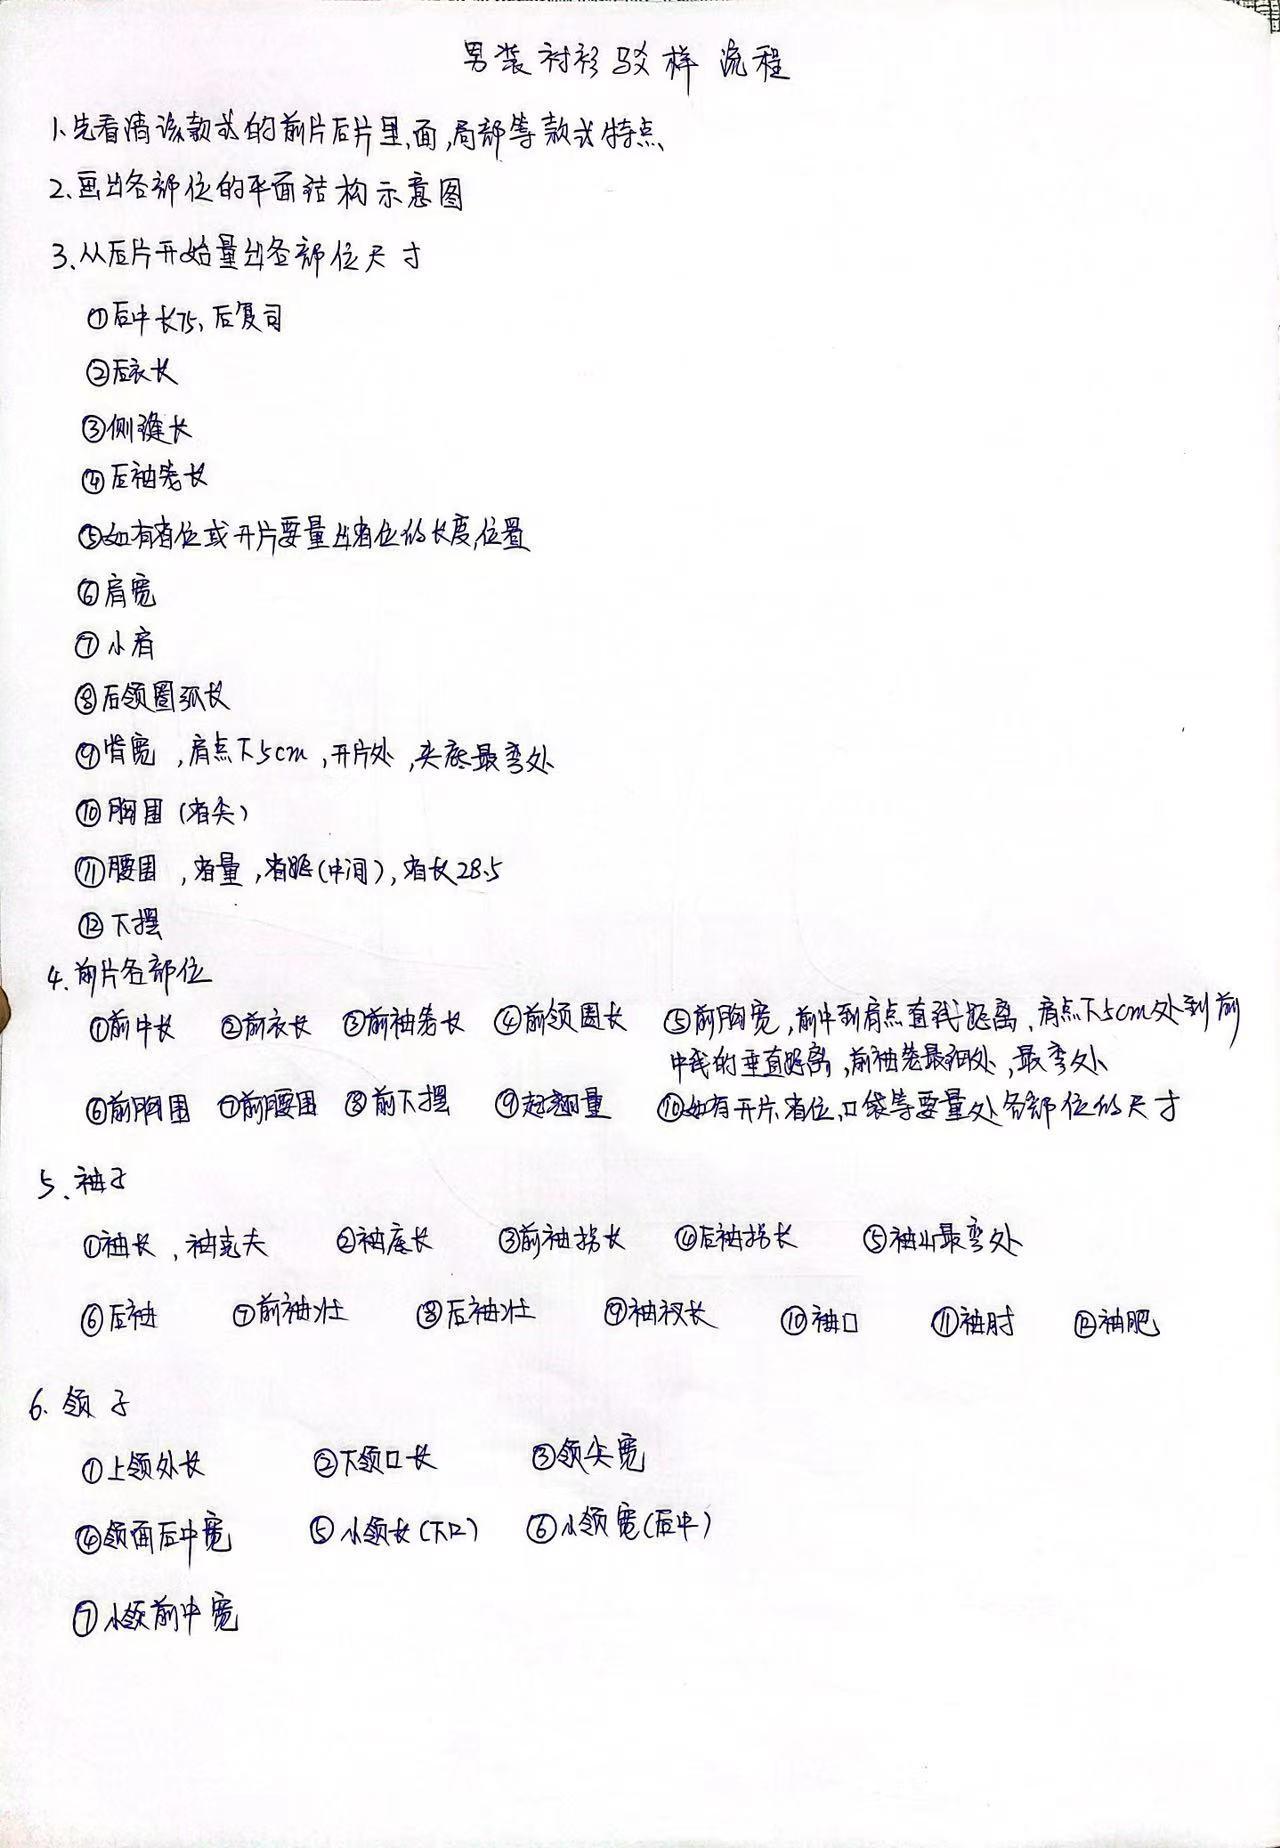 男装衬衫驳样流程
1、先看清该款式的前片后片里、面,局部等款式特点、
2、画出各部位的平面结构示意图
3、从后片开始量出各部位尺寸
①后中长75、后复司
②后衣长
③侧缝长
④后袖笼长
⑤如有省位或开片要量出省位的长度,位置
⑥肩宽
⑦小肩
⑧后领圈弧长
⑨背宽,肩点下5cm,开片处,夹底最弯处
⑩胸围(省尖)
⑪腰围,省量,省距(中间),省长28.5
⑫下摆
4、前片各部位
①前中长 ②前衣长 ③前袖笼长 ④前领圈长 ⑤前胸宽,前中到肩点直线距离、肩点下5cm处到前
中线的垂直距离,前袖笼最细处,最弯处
⑥前胸围 ⑦前腰围 ⑧前下摆 ⑨起翘量 ⑩如有开片、省位、口袋等要量处各部位的尺寸
5、袖子
①袖长,袖克夫 ②袖底长 ③前袖拐长 ④后袖拐长 ⑤袖山最弯处
⑥后袖 ⑦前袖壮 ⑧后袖壮 ⑨袖衩长 ⑩袖口 ⑪袖肘 ⑫袖肥
6、领子
①上领外长 ②下领口长 ③领尖宽
④领面后中宽 ⑤小领长(下口) ⑥小领宽(后中)
⑦小领前中宽